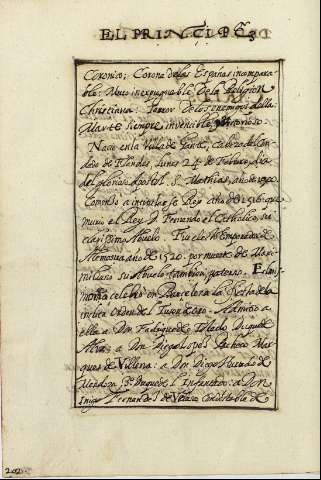 EL PRINCIPE
Coronica; Corona de las Españas incompara
ble: Muro inexpugnable De la Religion
Christiana: Terror De los enemigos della
Marte siempre invencible, glorioso.
Nacio en la Villa de Gante, Cabeza del Con
dado de Flandes, lunes 24 de Febrero, dia
del glorioso Apostol S. Mathias, año de 1500
Comenzo a intitularse Rey año de 1516 que
murio el Rey D. Fernando el Catholico, su
clarissimo Abuelo. Fue electo Emperador de
Alemania año de 1520. por muerte de Maxi
miliano su Abuelo tambien paterno. El mis
mo celebro en Barcelona la Fiesta de la
inclita Orden del Tuson de Oro. Admitio a
ella a Don Fadrique de Toledo Duque de
Alva: a Don Diego Lopez Pacheco Mar
ques de Villena: a Don Diego Hurtado de
Mendoza Duque del Infantado: a Don
Iñigo Fernandez de Velasco Condestable de